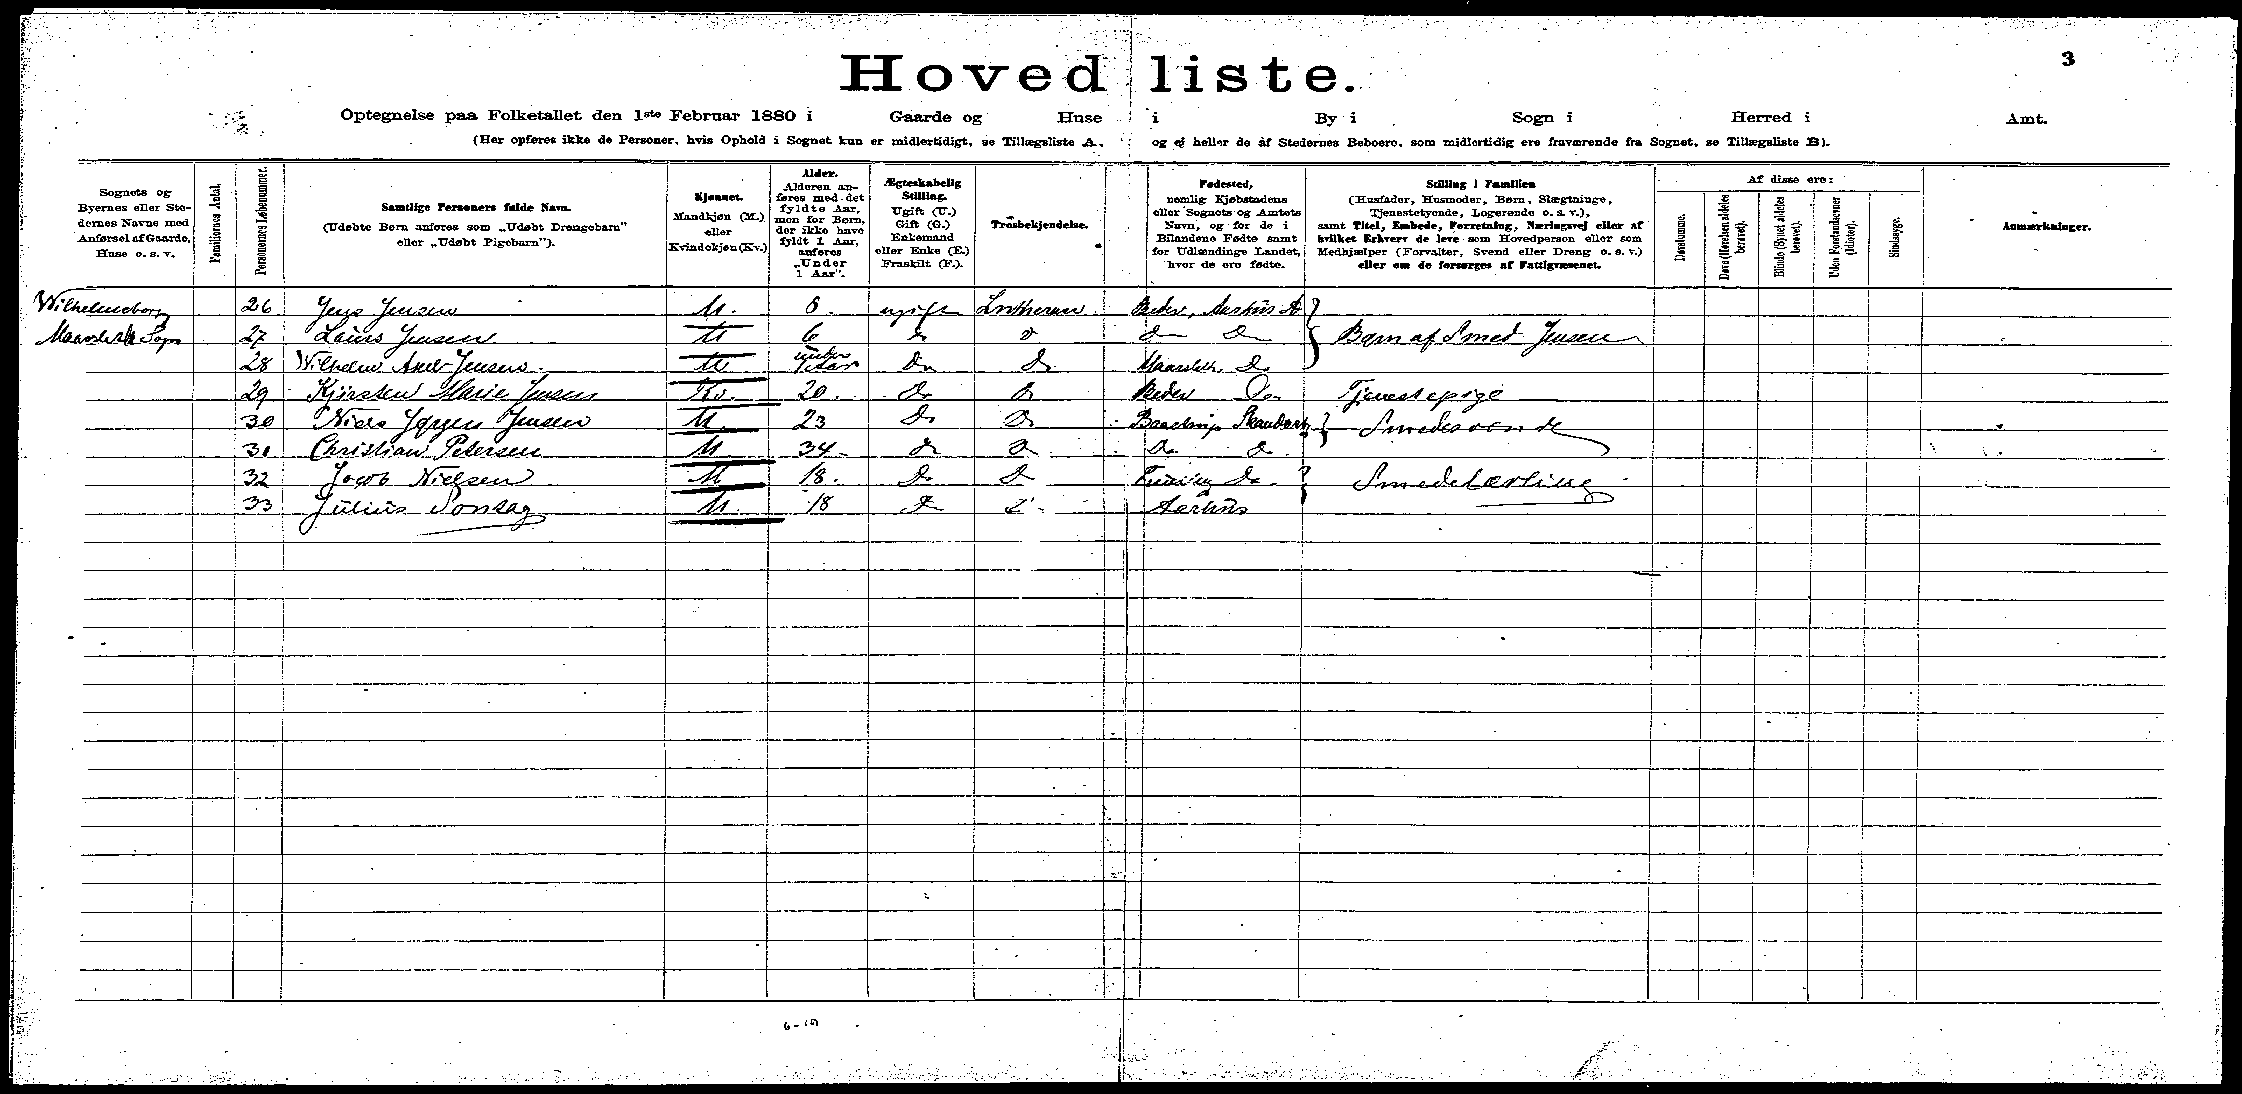 3
Hovedliste.
Optegnelse paa Folketallet den 1ste Februar 1880 i Gaarde og Huse i By i Sogn i Herred i Amt.
(Her opføres ikke de Personer, hvis Ophold i Sognet kun er midlertidigt, se Tillægsliste A, og ej heller de af Stedernes Beboere, som midlertidig ere fraværende fra Sognet, se Tillægsliste B).
Sognets og Byernes eller Stedernes Navne med Anførsel af Gaarde, Huse o. s. v.
Familiernes Antal.
Personernes Løbenummer.
Samtlige Personers fulde Navn.
(Udøbte Børn anføres som „Udøbt Drengebarn" eller „Udøbt Pigebarn").
Kjønnet.
Mandkjøn (M.) eller Kvindekjøn (Kv.)
Alder.
Alderen anføres med det fyldte Aar, men for Børn, der ikke have fyldt 1 Aar, anføres „Under 1 Aar".
Ægteskabelig Stilling.
Ugift (U.) Gift (G.) Enkemand eller Enke (E.) Fraskilt (F.).
Trosbekjendelse.
Fødested,
nemlig Kjøbstadens eller Sognets og Amtets Navn, og for de i Bilandene Fødte samt for Udlændinge Landet, hvor de ere fødte.
Stilling i Familien
(Husfader, Husmoder, Børn, Slægtninge, Tjenestetyende, Logerende o. s. v.), samt Titel, Embede, Forretning, Næringsvej eller af hvilket Erhverv de leve som Hovedperson eller som Medhjælper (Forvalter, Svend eller Dreng o. s. v.) eller om de forsørges af Fattigvæsenet.
Af disse ere:
Døvstumme.
Døve (Hørelsen aldeles berøvet).
Blinde (Synet aldeles berøvet).
Uden Forstandsevner (Idioter).
Sindssyge.
Anmærkninger.
Wilhelmsborg 26 Jens Jensen M. ugift Lutheraner Beder, Aarhus A
Maarslet Sogn 27 Laurs Jensen M 6 Do Do Do Do Børn af Smed Jensen
28 Wilhelm Axel Jensen M under 1 Aar Do Do Maarslet Do
29 Kjirsten Marie Jensen Kv. 20 Do Do Beder Do Tjenestepige
30 Niels Jørgen Jensen M 23 Do Do Skanderb Smedesvende
31 Christian Petersen M 34 Do Do Do Do
32 Jacob Nielsen M 18 Do Do Do Smedelærling
33 Julius Sontag M 18 Do Do Aarhus